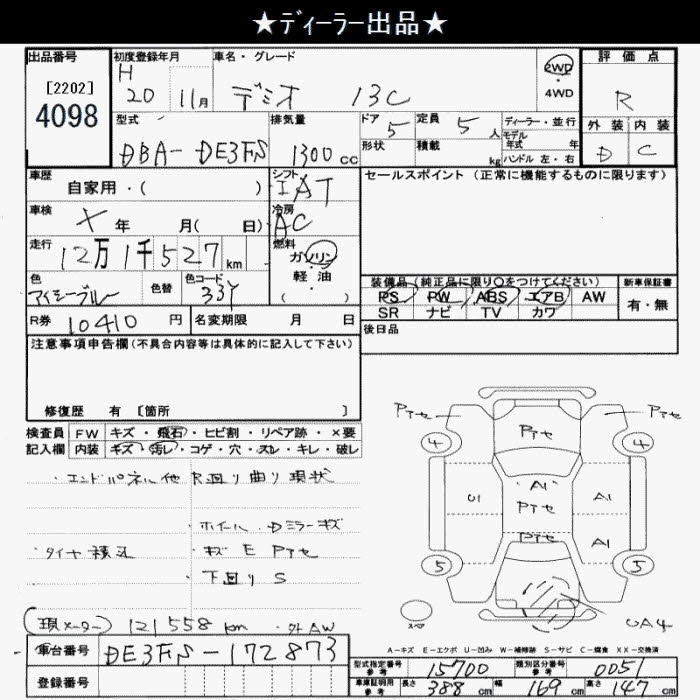 ★ディーラー出品★
出品番号 初度登録年月 車名・グレード 評価点
[2202] H 2WD
4098 20 11月 デミオ 13C ・ 4WD R
型式 排気量 ドア 5 定員 5人 ディーラー・並行 外装 内装
DBA-DE3FS 1300cc 形状 積載 kg モデル年式 年 D C
ハンドル 左・右
車歴 シフト セールスポイント (正常に機能するものに限ります)
自家用・( ) IAT
車検 冷房
× 年 月( 日) AC
走行 燃料
12万1千527km ガソリン
色 色替 色コード 軽・油 装備品 (純正品に限り○をつけてください) 新車保証書
アイシーブルー 33Y ( ) PS PW ABS エアB AW 有・無
SR ナビ TV カワ
R券 10410円 名変期限 月 日 後日品
注意事項申告欄(不具合内容等は具体的に記入して下さい)
修復歴 有 [箇所 ]
検査員 FW キズ・飛石・ヒビ割・リペア跡・×要
記入欄 内装 キズ・汚レ・コゲ・穴・スレ・キレ・破レ
・エンドパネル他 R廻り曲り現状
・ホイール・Dミラーキズ
・タイヤ積込 ・キズ E Pアセ
・下回り S
(現メーター) 121558km ・外AW
Pアセ Pアセ
4 Pアセ 4
U1 A1 A1
Pアセ
Pアセ A1
5 5
スペア UA4
A-キズ E-エクボ U-凹み W-補修跡 S-サビ C-腐食 XX-交換済
車台番号 DE3FS-172873
登録番号
型式指定番号 参考 15700 類別区分番号 参考 0051
車庫証明用 参考 長さ 388cm 幅 169cm 高さ 147cm